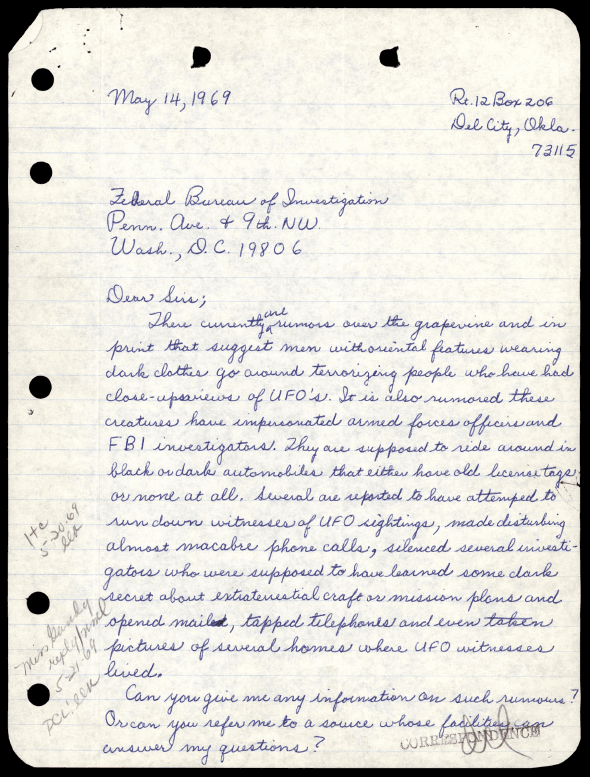 May 14, 1969
Rt. 12 Box 206
Del City, Okla.
73115
Federal Bureau of Investigation
Penn. Ave. & 9th. NW.
Wash., D.C. 19806
Dear Sirs;
There currently are rumors over the grapevine and in
print that suggest men with oriental features wearing
dark clothes go around terrorizing people who have had
close-up views of UFO's. It is also rumored these
creatures have impersonated armed forces officers and
FBI investigators. They are supposed to ride around in
black or dark automobiles that either have old license tags
or none at all. Several are reported to have attemped to
run down witnesses of UFO sightings, made disturbing
almost macabre phone calls, silenced several investi-
gators who were supposed to have learned some dark
secret about extraterrestial craft or mission plans and
opened mail, tapped telephones and even taken
pictures of several homes where UFO witnesses
lived.
Can you give me any information on such rumours?
Or can you refer me to a source whose facilities can
answer my questions?
5-20-69
Miss Gandy
reply/send
5-21-69
CORRESPONDENCE